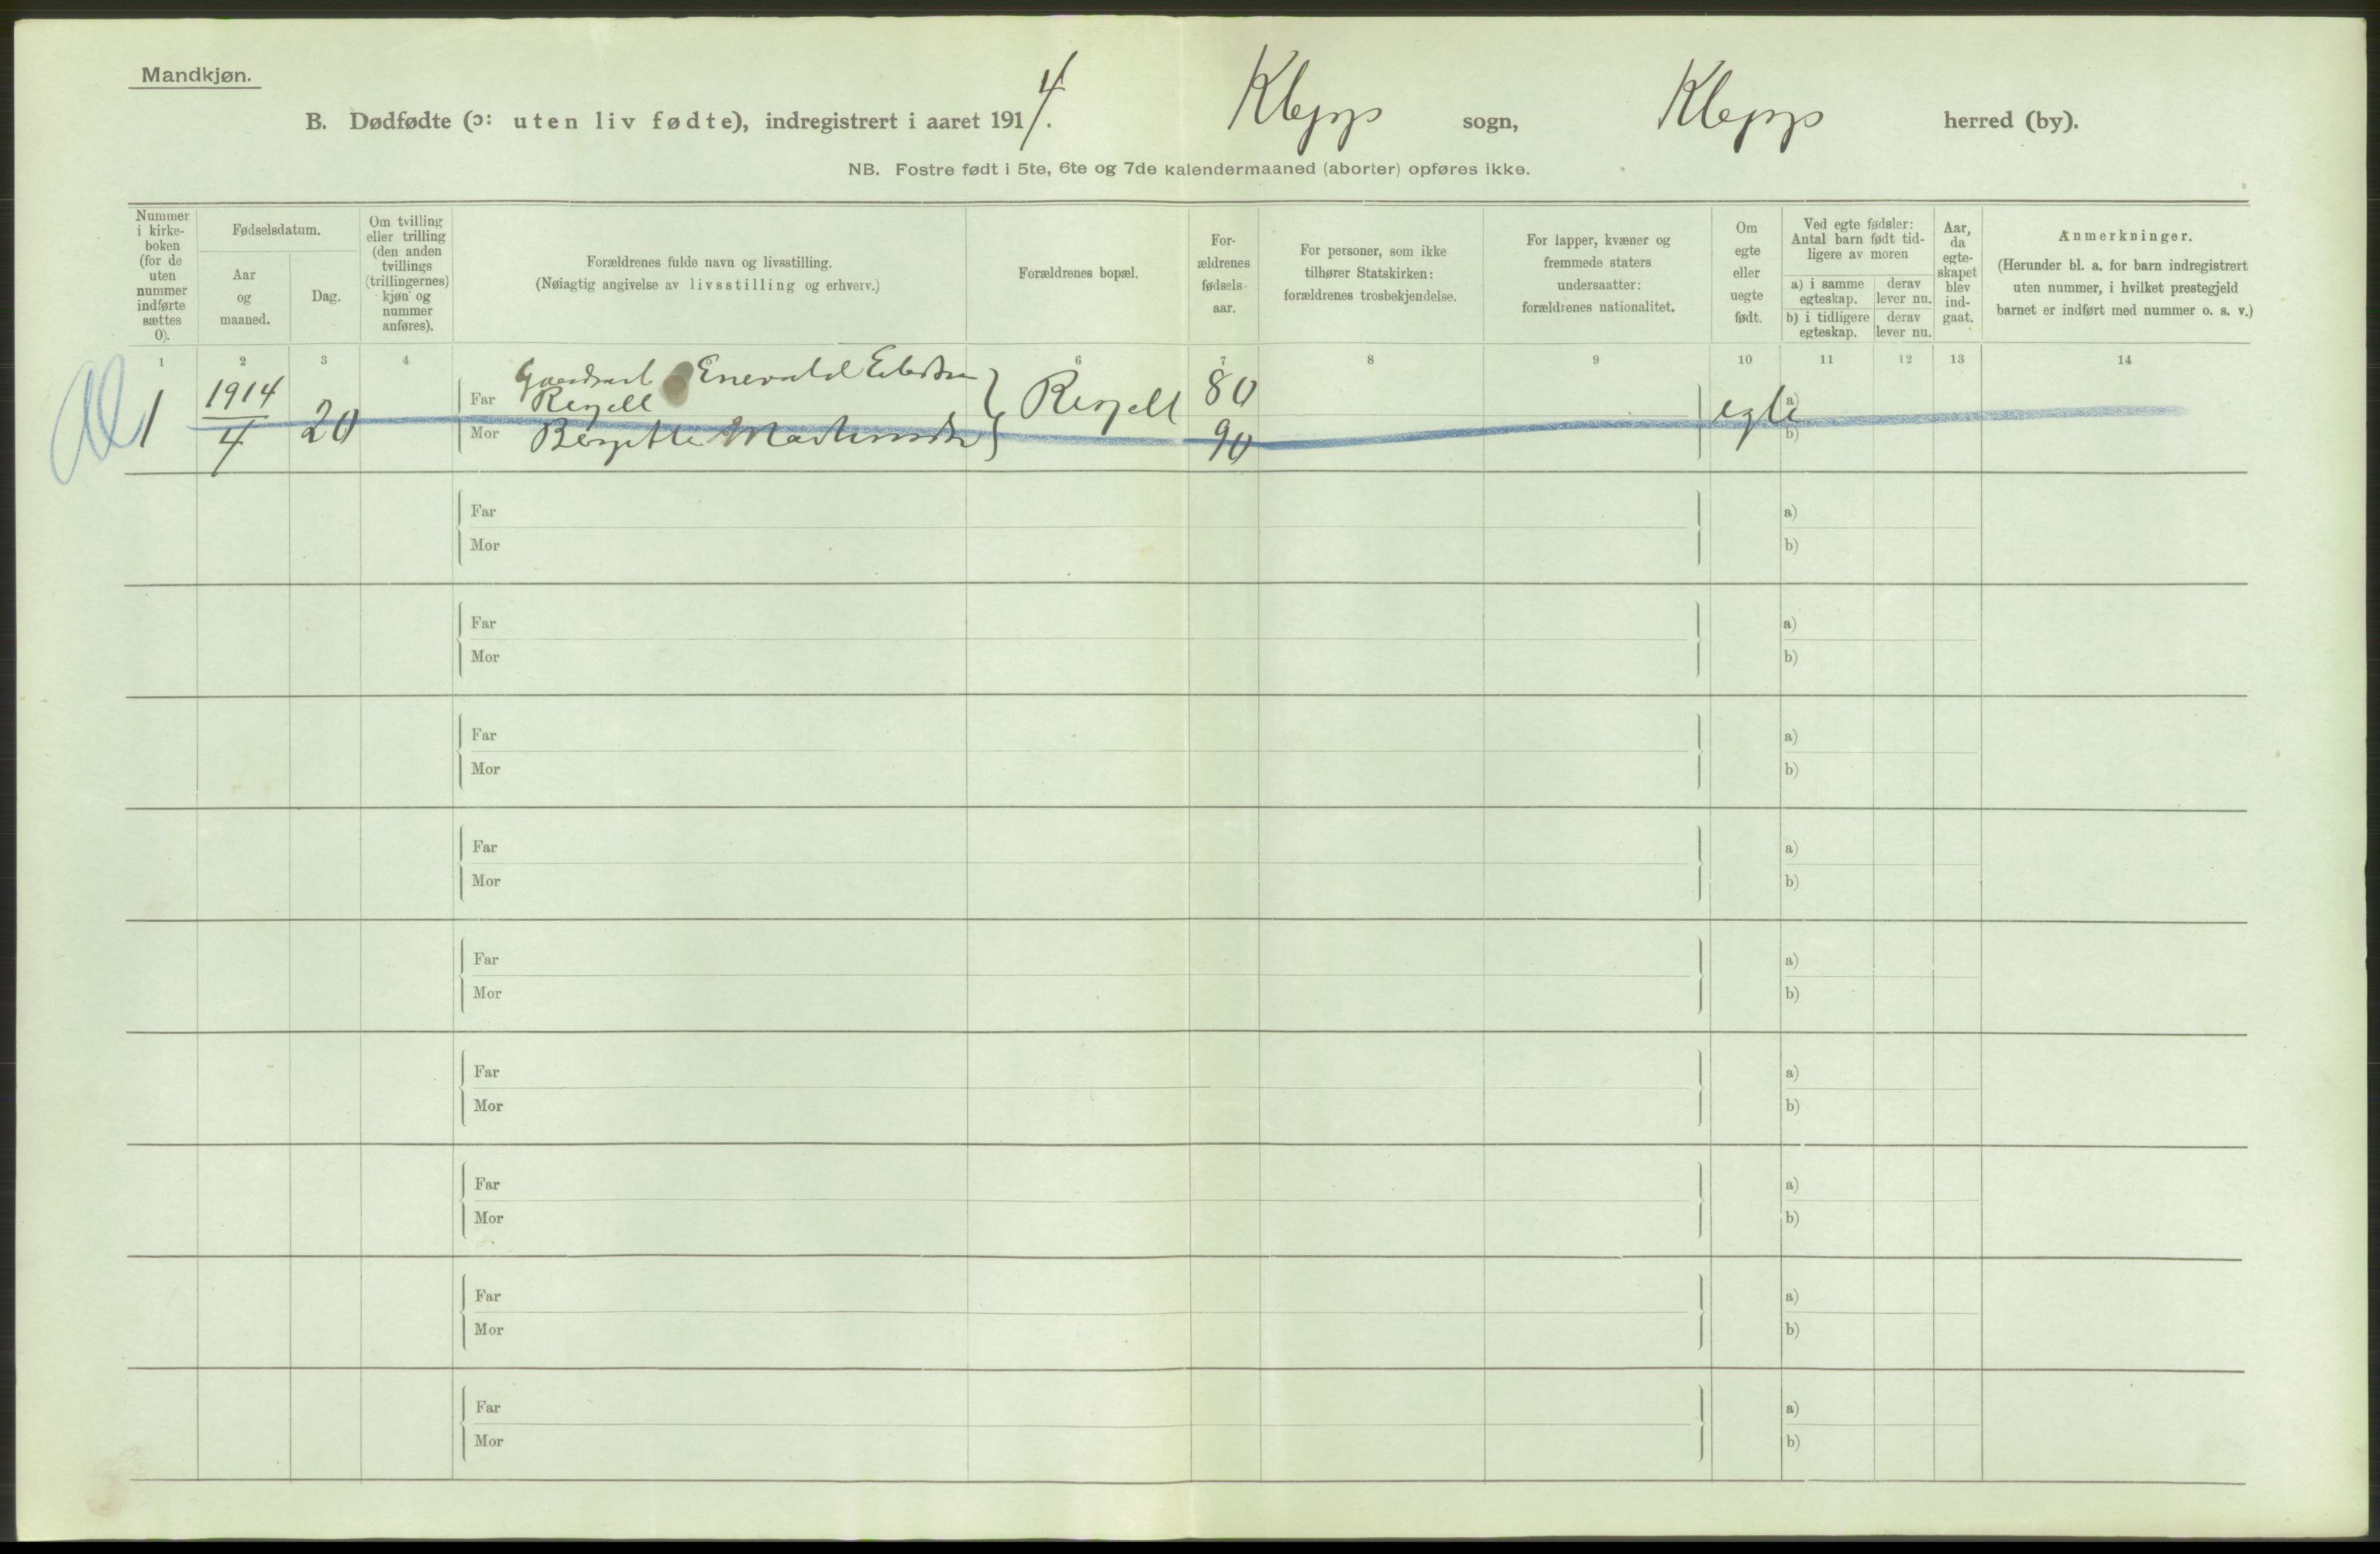 Mandkjøn.
B. Dødfødte (ɔ: uten liv fødte), indregistrert i aaret 1914. Klepp sogn, Klepp herred (by).
NB. Fostre født i 5te, 6te og 7de kalendermaaned (aborter) opføres ikke.
Nummer i kirke- boken (for de uten nummer indførte sættes 0).
Fødselsdatum.
Aar og maaned.
Dag.
Om tvilling eller trilling (den anden tvillings (trillingernes) kjøn og nummer anføres).
Forældrenes fulde navn og livsstilling.
(Nøiagtig angivelse av livsstilling og erhverv.)
Forældrenes bopæl.
For- ældrenes fødsels- aar.
For personer, som ikke tilhører Statskirken: forældrenes trosbekjendelse.
For lapper, kvæner og fremmede staters undersaatter: forældrenes nationalitet.
Om egte eller uegte født.
Ved egte fødsler: Antal barn født tid- ligere av moren
a) i samme egteskap.
derav lever nu.
b) i tidligere egteskap.
derav lever nu.
Aar, da egte- skapet blev ind- gaat.
Anmerkninger.
(Herunder bl. a. for barn indregistrert uten nummer, i hvilket prestegjeld barnet er indført med nummer o. s. v.)
1 2 3 4 6 7 8 9 10 11 12 13 14
1 1914 4 20
Far Enevald 80
Mor Bergitte 90
egte a) b)
Far a)
Mor b)
Far a)
Mor b)
Far a)
Mor b)
Far a)
Mor b)
Far a)
Mor b)
Far a)
Mor b)
Far a)
Mor b)
Far a)
Mor b)
Far a)
Mor b)